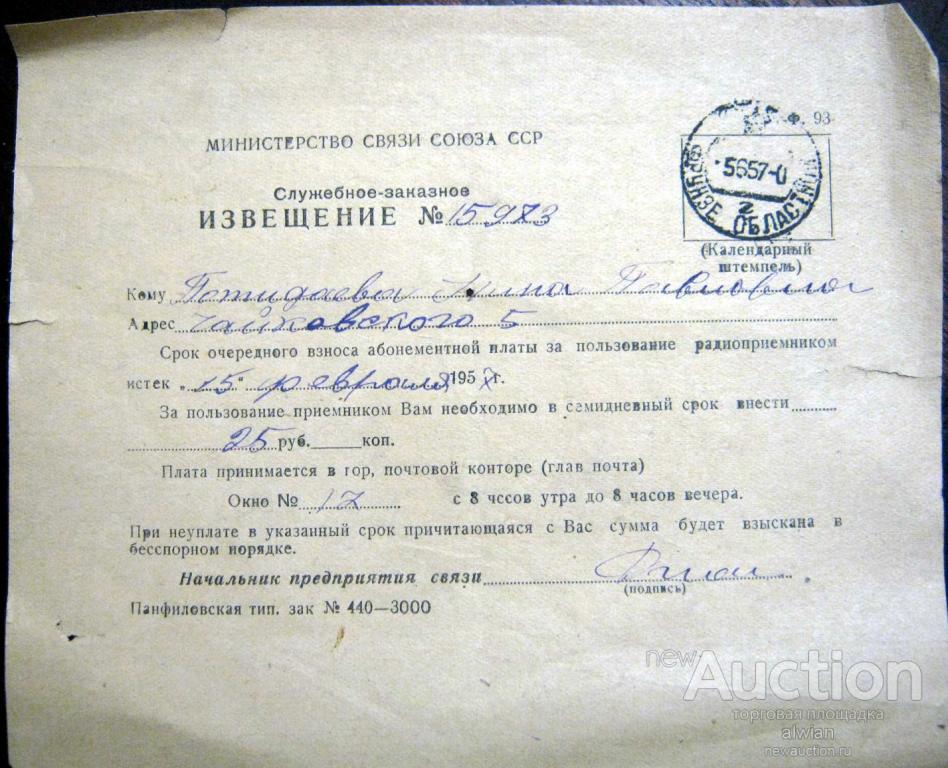 Ф. 93
МИНИСТЕРСТВО СВЯЗИ СОЮЗА ССР
5657-0
2
ФРУНЗЕ ОБЛАСТНОЙ
Служебное-заказное
ИЗВЕЩЕНИЕ № 15973
(Календарный
штемпель)
Кому Потидаева Нина Павловна
Адрес Чайковского 5
Срок очередного взноса абонементной платы за пользование радиоприемником
истек „15" февраля 1957г.
За пользование приемником Вам необходимо в семидневный срок внести
25 руб. коп.
Плата принимается в гор, почтовой конторе (глав почта)
Окно № 17 с 8 чссов утра до 8 часов вечера.
При неуплате в указанный срок причитающаяся с Вас сумма будет взыскана в
бесспорном норядке.
Начальник предприятия связи
(подпись)
Панфиловская тип. зак № 440—3000
newAuction
торговая площадка
alwian
newauction.ru